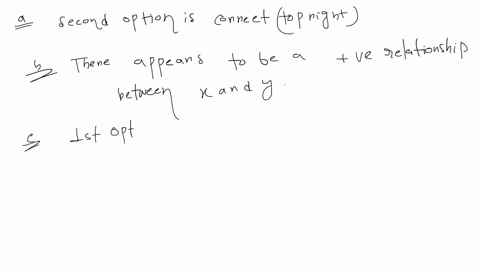 a second option is connect (top right)
b There appears to be a +ve relationship
between x and y.
c 1st opt